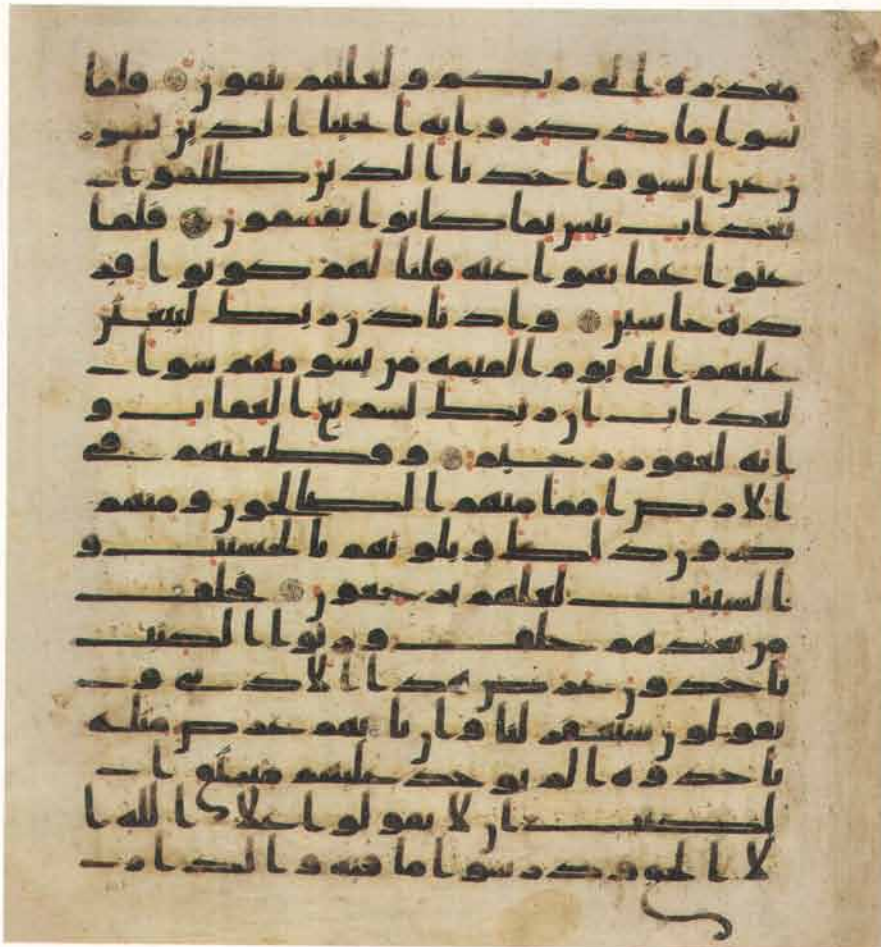 معذرة الى ربكم ولعلهم يتقون فلما
نسوا ما ذكروا به انجينا الذين ينهو
ن عن السو واخذنا الذين ظلموا
بعذاب بئيس بما كانوا يفسقون فلما
عتوا عما نهوا عنه قلنا لهم كونوا قر
دة خاسين واذ تاذن ربك ليبعثن
عليهم الى يوم القيمة من يسومهم سو ا
لعذاب ان ربك لسريع العقاب و
انه لغفور رحيم وقطعنهم في
الارض امما منهم الصالحون ومنهم
دون ذلك وبلونهم بالحسنت و
السيئت لعلهم يرجعون فخلف
من بعدهم خلف ورثوا الكتب
ياخذون عرض هذا الادنى و
يقولون سيغفر لنا وان ياتهم عرض مثله
ياخذوه الم يوخذ عليهم ميثق ا
لكتب ان لا يقولوا على الله ا
لا الحق ودرسوا ما فيه والدار